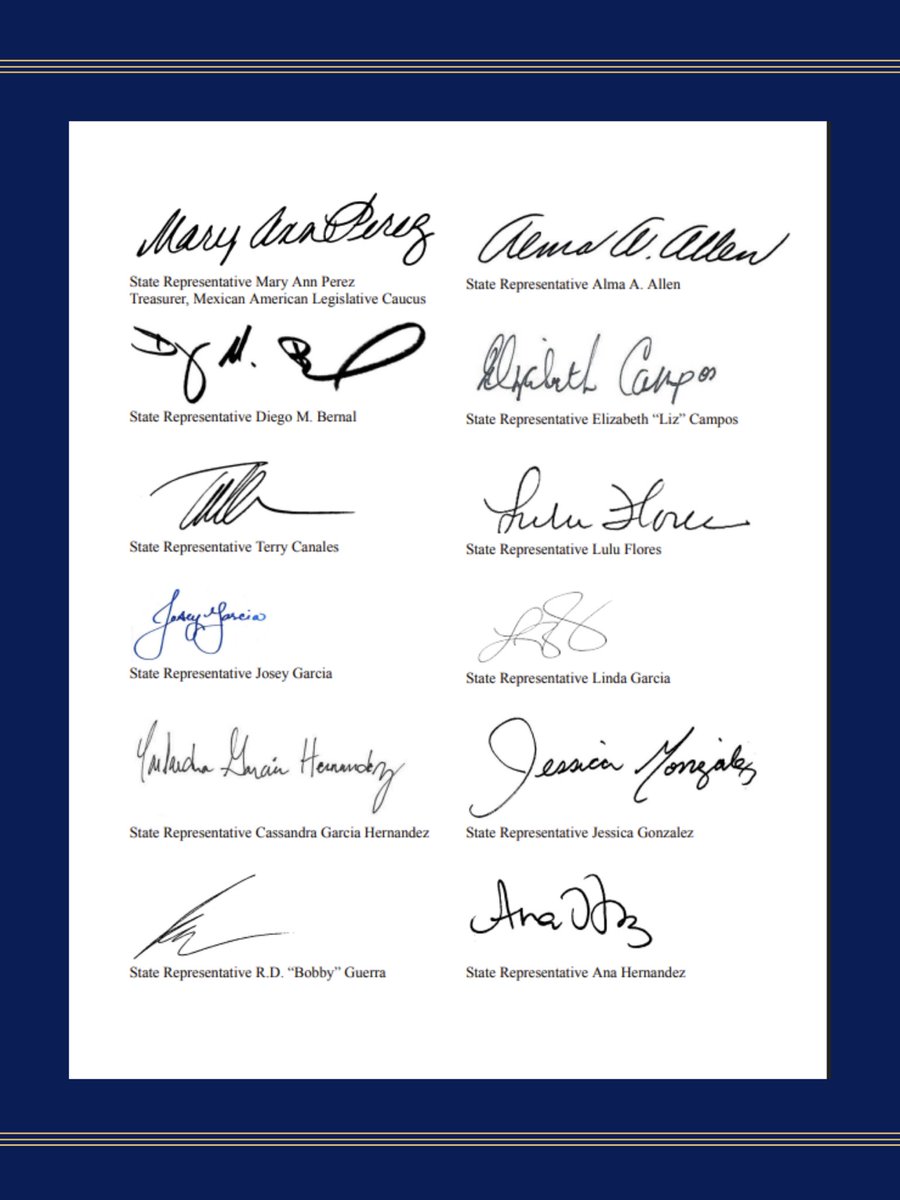 Mary Ann Perez
State Representative Mary Ann Perez
Treasurer, Mexican American Legislative Caucus
Alma A. Allen
State Representative Alma A. Allen
State Representative Diego M. Bernal
Elizabeth Campos
State Representative Elizabeth “Liz” Campos
State Representative Terry Canales
Lulu Flores
State Representative Lulu Flores
Josey Garcia
State Representative Josey Garcia
State Representative Linda Garcia
Cassandra Garcia Hernandez
State Representative Cassandra Garcia Hernandez
Jessica Gonzalez
State Representative Jessica Gonzalez
State Representative R.D. “Bobby” Guerra
Ana Hdz
State Representative Ana Hernandez